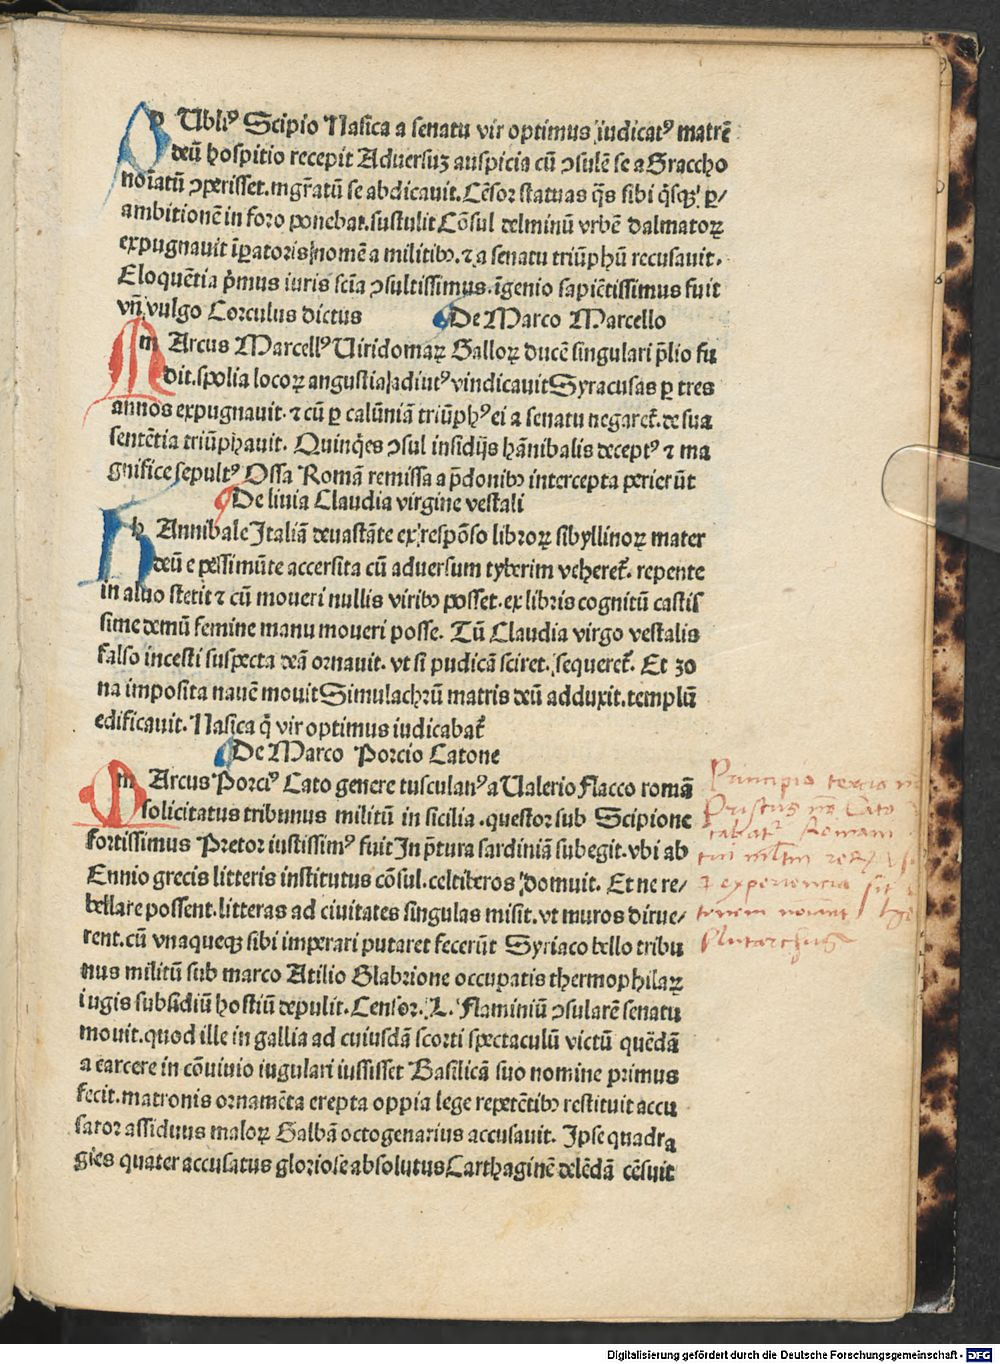 PUbliꝰ Scipio Nasica a senatu vir optimus iudicatꝰ matrē
deū hospitio recepit Aduersuʒ auspicia cū ↄsulē se a Graccho
noīatū ↄperisset. mgr̄atū se abdicauit. Cēsor statuas q̄s sibi q̄sqꝫ ꝑ/
ambitionē in foro ponebat. sustulit Cōsul delminū vrbē dalmatoꝝ
expugnauit īꝑatoris nomē a militibꝫ. ⁊ a senatu triūphū recusauit.
Eloquētia p̄mus iuris scīa ↄsultissimus. īgenio sapiētissimus fuit
vn̄ vulgo Corculus dictus De Marco Marcello
mArcus Marcellꝰ Uiridomaꝝ Galloꝝ ducē singulari p̄lio fu
dit. spolia locoꝝ angustia adiutꝰ vindicauit Syracusas ꝑ tres
annos expugnauit. ⁊ cū ꝑ calūniā triūphꝰ ei a senatu negaret̄. de sua
sentētia triūphauit. Quinq̄es ↄsul insidijs hānibalis deceptꝰ ⁊ ma
gnifice sepultꝰ Ossa Romā remissa a p̄donibꝫ intercepta perierūt
De liuia Claudia virgine vestali
hAnnibale Italiā deuastāte ex respōso libroꝝ sibyllinoꝝ mater
deū e pessimūte accersita cū aduersum tyberim veheret̄. repente
in aluo stetit ⁊ cū moueri nullis viribꝫ posset. ex libris cognitū castis
sime demū femine manu moueri posse. Tū Claudia virgo vestalis
falso incesti suspecta deā ornauit. vt si pudicā sciret. sequeret̄. Et zo
na imposita nauē mouit Simulachrū matris deū adduxit. templū
edificauit. Nasica q̄ vir optimus iudicabat̄
De Marco Porcio Catone
mArcus Porciꝰ Cato genere tusculanꝰ a Ualerio Flacco romā
solicitatus tribunus militū in sicilia. questor sub Scipione
fortissimus Pretor iustissimꝰ fuit In p̄tura sardiniā subegit. vbi ab
Ennio grecis litteris institutus cōsul. celtiberos domuit. Et ne re/
bellare possent. litteras ad ciuitates singulas misit. vt muros dirue/
rent. cū vnaqueqꝫ sibi imperari putaret fecerūt Syriaco bello tribu
nus militū sub marco Atilio Glabrione occupatis thermophilaꝝ
iugis subsidiū hostiū depulit. Censor. L. Flaminiū ↄsularē senatu
mouit. quod ille in gallia ad cuiusdā scorti spectaculū victū quēdā
a earcere in cōuiuio iugulari iussisset Basilicā suo nomine primus
fecit. matronis ornamēta erepta oppia lege repetētibꝫ restituit accu
sator assiduus maloꝝ Galbā octogenarius accusauit. Ipse quadra
gies quater accusatus gloriose absolutus Carthaginē delēdā cēsuit
Principio tercio
Priscus Cato
Romani
⁊ experiencia sit
Plutarchus
Digitalisierung gefördert durch die Deutsche Forschungsgemeinschaft - DFG